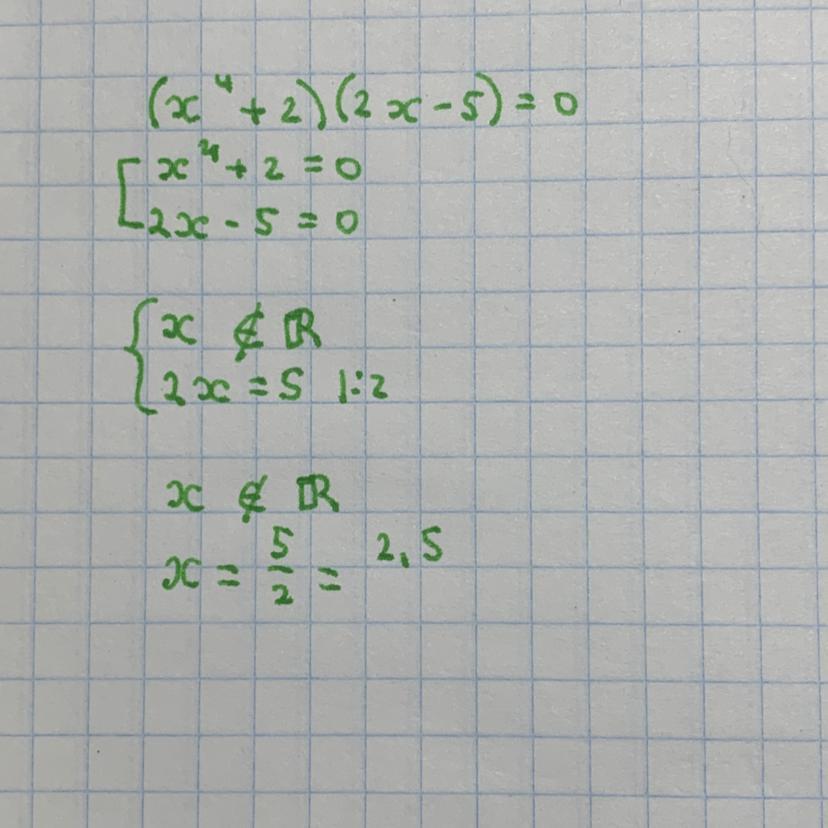 (x⁴ + 2)(2x - 5) = 0
[ x⁴ + 2 = 0
2x - 5 = 0
{ x ∉ ℝ
2x = 5 |:2
x ∉ ℝ
x = 5/2 = 2,5